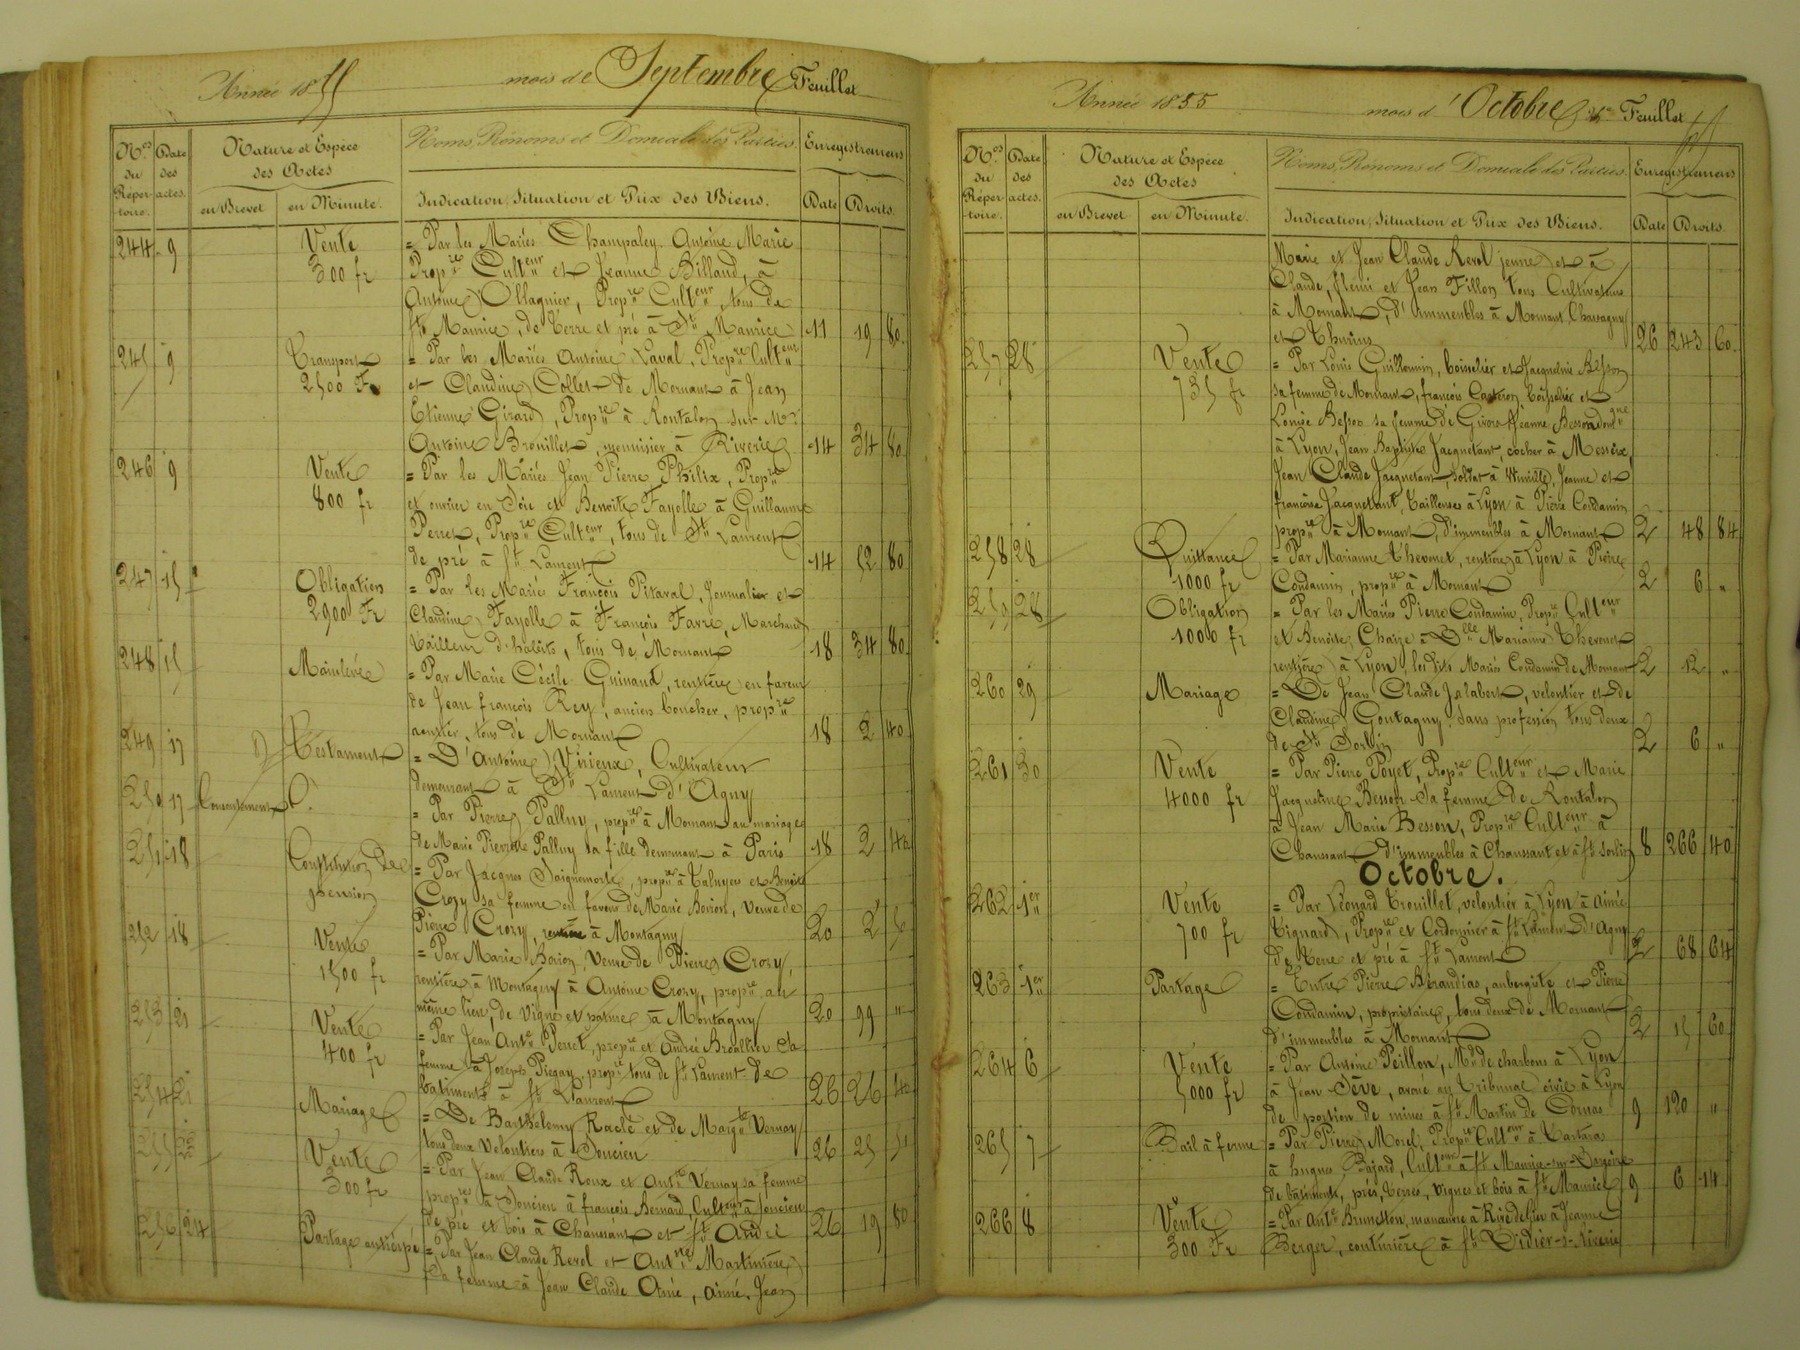 Année 1855 mois de Septembre Feuillet
Nos du Répertoire. Date des actes. Nature et Espèce des Actes Noms, Prénoms et Domicile des Parties. Enregistremens
en Brevet en Minute. Indication, Situation et Prix des Biens. Date Droits.
244 9 Vente = Par les Mariés Champaley Antoine Marie
300 fr Propre Culteur et Jeanne Billaud, à
Antoine Ollagnier, Propre Culteur, tous de
St Maurice, de terre et pré à St Maurice 11 19 80
245 9 Transport = Par les Mariés Antoine Laval, Propre Culteur
2500 F et Claudine Collet de Mornant à Jean
Etienne Girard, Propre à Rontalon sur Mr
Antoine Brouillet, menuisier à Riverie 14 34 80
246 9 Vente = Par les Mariés Jean Pierre Philix, Propre
800 fr et ouvrier en Soie et Benoite Fayolle à Guillaume
Perret, Propre Culteur, tous de St Laurent
de pré à St Laurent 14 52 80
247 15 Obligation = Par les Mariés François Pitaval, Journalier et
2900 Fr Claudine Fayolle à François Favre, Marchand
tailleur d'habits, tous de Mornant 18 34 80
248 15 Mainlevée = Par Marie Cécile Guinand, rentière en faveur
de Jean François Rey, ancien boucher, propre
rentier, tous de Mornant 18 2 40
249 17 Testament = D'Antoine Virieux, Cultivateur
demeurant à St Laurent d'Agny
250 17 Consentement = Par Pierre Palluy, propre à Mornant au mariage
de Marie Pierrette Palluy sa fille demeurant à Paris 18 2 40
251 18 Constitution de = Par Jacques Saignemorte, propre à Taluyers et Benoite
pension Crozy sa femme en faveur de Marie Boiron, Veuve de
Pierre Crozy, rentière à Montagny 20 2
252 18 Vente = Par Marie Boiron, Veuve de Pierre Crozy,
1500 fr rentière à Montagny à Antoine Crozy, propre au
même lieu, de vigne et patine à Montagny 20 99 "
253 21 Vente = Par Jean Ante Perret, propre et Andrée Broallier sa
400 fr femme à Joseph Piegay, propre tous de St Laurent de
batiments à St Laurent 26 26 40
254 21 Mariage = De Barthelemy Racle et de Margte Vernay
tous deux Veloutiers à Soucieu 26 25 51
255 22 Vente = Par Jean Claude Roux et Antte Vernay sa femme
300 fr propres à Soucieu à François Bernard, Culteur à Soucieu
de pré et bois à Chaussant et St André 26 19 80
256 24 Partage anticipé = Par Jean Claude Revol et Antte Martinière
sa femme à Jean Claude Aîné, Aimé, Jean
Année 1855 mois d'Octobre Feuillet
Nos du Répertoire. Date des actes. Nature et Espèce des Actes Noms, Prénoms et Domicile des Parties. Enregistremens
en Brevet en Minute. Indication, Situation et Prix des Biens. Date Droits.
Marie et Jean Claude Revol jeune et à
Claude, Rémi et Jean Fillon tous Cultivateurs
à Mornant, d'Immeubles à Mornant Chassagny
et Thurins 26 243 60
257 28 Vente = Par Louis Guillermin, boisselier et Jacqueline Besson
735 fr sa femme de Mornant, François Casteron boisselier et
Louise Besson sa femme de Givors Jeanne Besson domque
à Lyon, Jean Baptiste Jacquetant, cocher à Messieix,
Jean Claude Jacquetant soldat à , Jeanne et
Françoise Jacquetant, tailleuses à Lyon à Pierre Condamin
propre à Mornant, d'immeubles à Mornant 2 48 84
258 28 Quittance = Par Marianne Thevenet, rentière à Lyon à Pierre
1000 fr Condamin, propre à Mornant 2 6 "
259 28 Obligation = Par les Mariés Pierre Condamin, Propre Culteur
1000 fr et Benoite Chaize à Dlle Marianne Thevenet
rentière à Lyon, lesdits Mariés Condamin de Mornant 2 12 "
260 29 Mariage = De Jean Claude Jalabert, veloutier et de
Claudine Goutagny sans profession tous deux
de St Sorlin 2 6 "
261 30 Vente = Par Pierre Poyet, Propre Culteur et Marie
4000 fr Jacqueline Besson sa femme de Rontalon
à Jean Marie Besson, Propre Culteur à
Chaussant d'immeubles à Chaussant et à St Sorlin 8 266 40
Octobre.
262 1er Vente = Par Léonard Trouillet, veloutier à Lyon à Aimé
700 fr Tignard, Propre et Cordonnier à St Laurent d'Agny
de terre et pré à St Laurent 2 68 64
263 1er Partage = Entre Pierre Bérandias, aubergiste et Pierre
Condamin, propriétaire, tous deux de Mornant
d'immeubles à Mornant 2 15 60
264 6 Vente = Par Antoine Peillon, Md de charbons à Lyon
5000 fr à Jean Sève, avoué au Tribunal civil à Lyon
de portion de mines à St Martin de Cornas 9 120 "
265 7 Bail à ferme = Par Pierre Morel, Propre Culteur à Tartaras
à Hugues Bajard, Culteur à St Maurice-sur-Dargoire
de bâtiments, prés, terres, vignes et bois à St Maurice 9 6 14
266 8 Vente = Par Ante Bruneton, manœuvre à Rive de Gier à Jeanne
300 Fr Berger, couturière à St Didier-s-Riverie